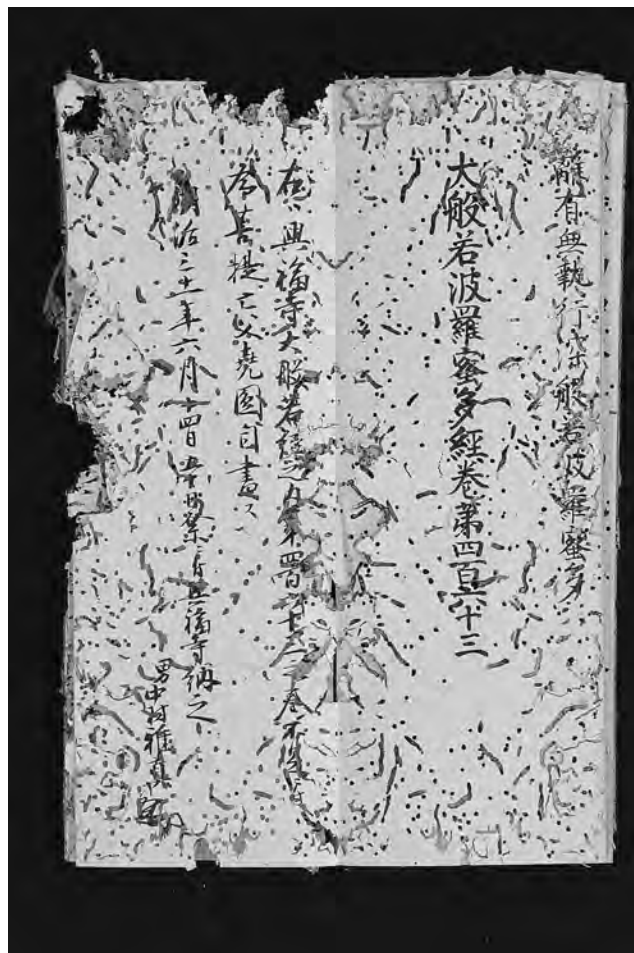 離有無執行深般若波羅蜜多
大般若波羅蜜多經卷第四百六十三
右、興福寺大般若經之内第四百六十三之卷不足ニ付
為菩提亡父堯圓自書ス
明治三十一年六月十四日當村祭ニ付興福寺納之
男中村雅真